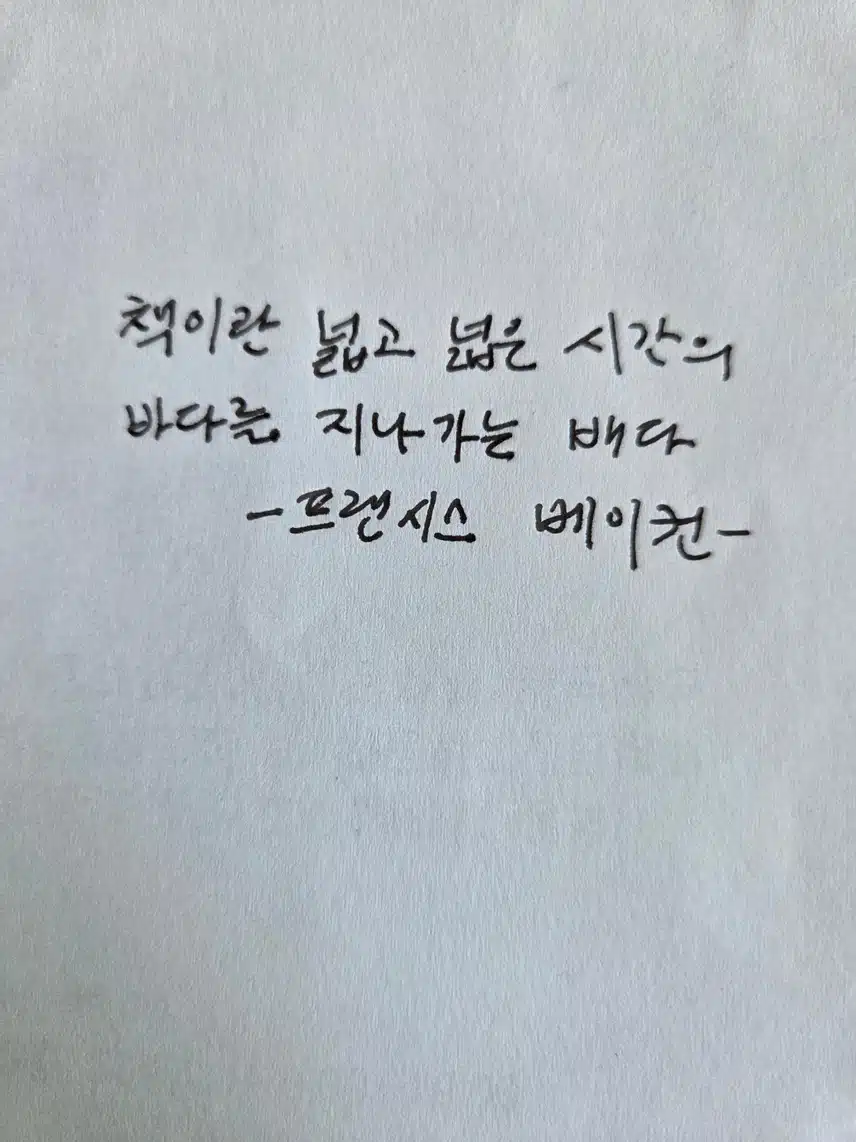 책이란 넓고 넓은 시간의
바다를 지나가는 배다
-프랜시스 베이컨-